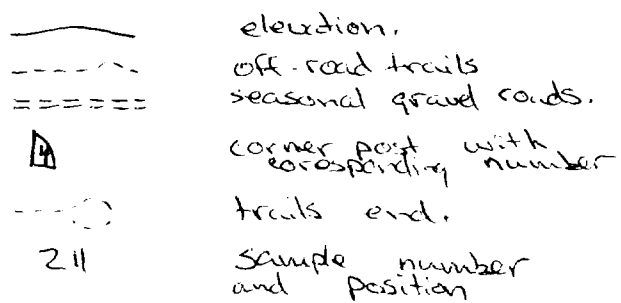 elevation.
off-road trails
seasonal gravel roads.
4 corner post with
corosponding number
trails end.
211 sample number
and position